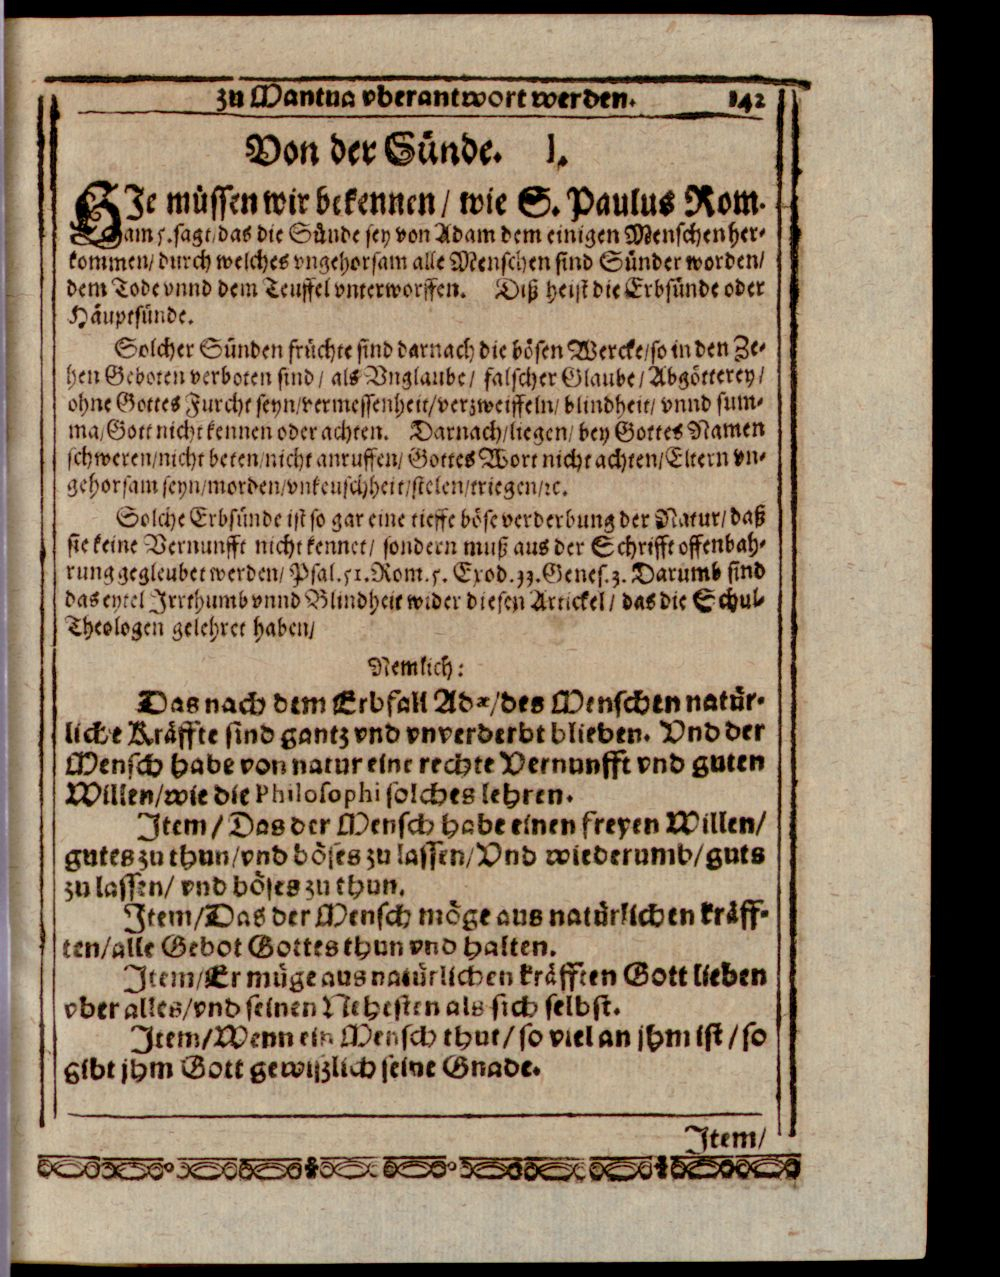 zu Mantua vberantwort werden. 142
Von der Sünde. I.
HJe müssen wir bekennen / wie S. Paulus Rom.
am 5. sagt/das die Sünde sey von Adam dem einigen Menschen her-
kommen/durch welches vngehorsam alle Menschen sind Sünder worden/
dem Tode vnnd dem Teuffel vnterworffen. Diß heist die Erbsünde oder
Häuptsünde.
Solcher Sünden früchte sind darnach die bösen Wercke/so in den Ze-
hen Geboten verboten sind / als Vnglaube / falscher Glaube / Abgötterey /
ohne Gottes Furcht seyn/vermessenheit/verzweiffeln/ blindheit/ vnnd sum-
ma/Gott nicht kennen oder achten. Darnach/liegen/ bey Gottes Namen
schweren/nicht beten/nicht anruffen/ Gottes Wort nicht achten/Eltern vn-
gehorsam seyn/morden/vnkeuschheit/stelen/triegen/ꝛc.
Solche Erbsünde ist so gar eine tieffe böse verderbung der Natur/daß
sie keine Vernunfft nicht kennet/ sondern muß aus der Schrifft offenbah-
rung gegleubet werden/ Psal.51.Rom.5. Exod.33.Genes.3. Darumb sind
das eytel Jrrthumb vnnd Blindheit wider diesen Artickel / das die Schul-
Theologen gelehret haben/
Nemlich:
Das nach dem Erbfall Adæ/des Menschen natür-
liche Kräffte sind gantz vnd vnverderbt blieben. Vnd der
Mensch habe von natur eine rechte Vernunfft vnd guten
Willen/wie die Philosophi solches lehren.
Jtem / Das der Mensch habe einen freyen Willen/
gutes zu thun/vnd böses zu lassen/Vnd wiederumb/guts
zu lassen/ vnd böses zu thun.
Jtem/Das der Mensch möge aus natürlichen kräff-
ten/alle Gebot Gottes thun vnd halten.
Jtem/Er müge aus natürlichen kräfften Gott lieben
vber alles/vnd seinen Nehesten als sich selbst.
Jtem/Wenn ein Mensch thut / so viel an jhm ist / so
gibt jhm Gott gewißlich seine Gnade.
Jtem/